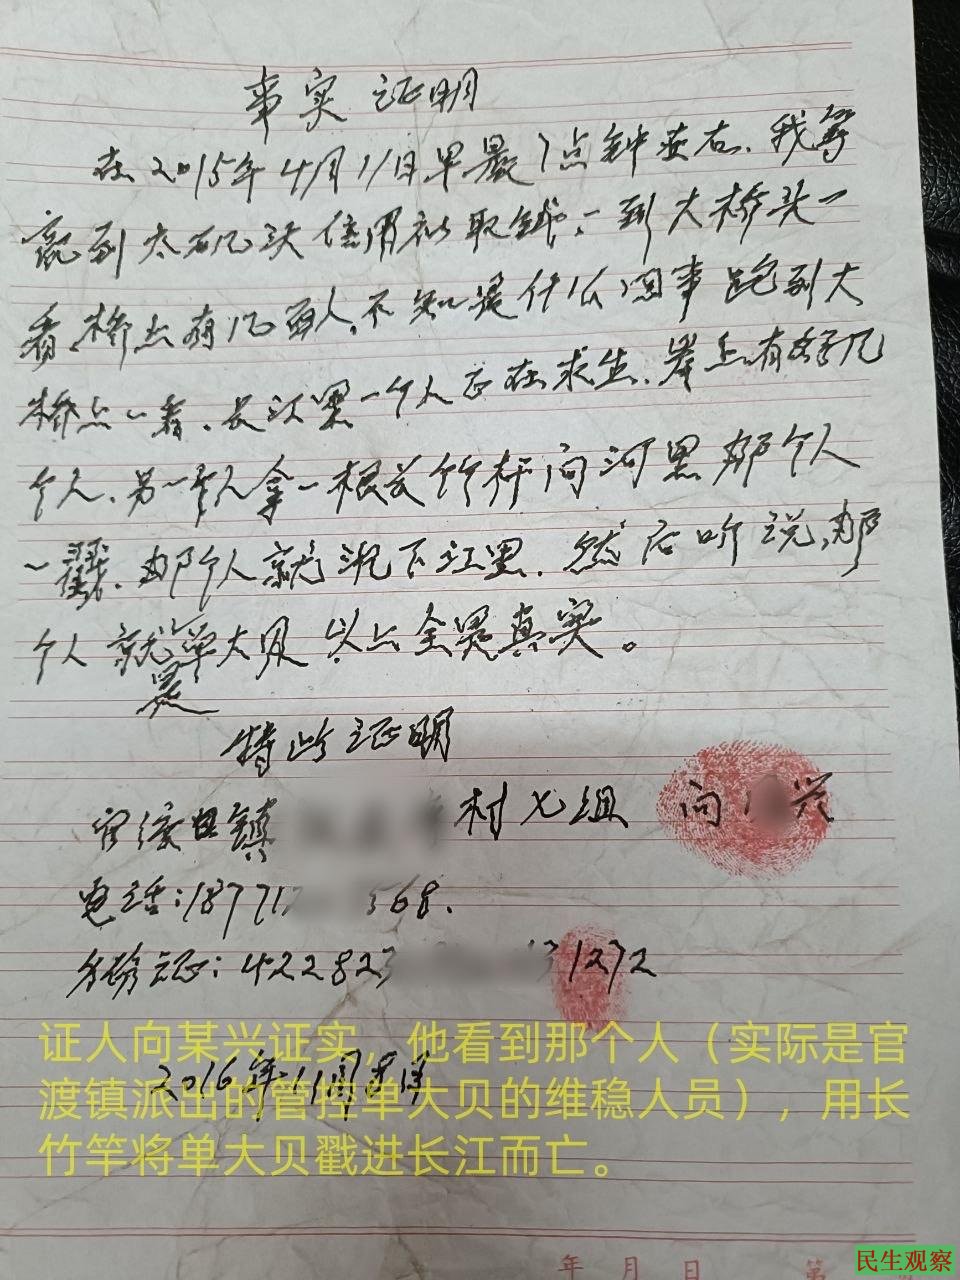 事实证明
在2015年4月11日早晨7点钟左右,我等
说到太矶头信用社取钱,一到大桥头一
看,桥上有几百人,不知是什么回事跑到大
桥上一看,长江里一个人正在求生,岸上有好几
个人,另一个人拿一根长竹杆向河里那个人
一戳,那个人就沉下江里,然后听说,那
个人就是单大贝 以上全是真实。
特此证明
官渡口镇 村七组 向 兴
电话:18771 568.
身份证:422823 31272
2016年11月
证人向某兴证实,他看到那个人(实际是官
渡镇派出的管控单大贝的维稳人员),用长
竹竿将单大贝戳进长江而亡。
年 月 日 第
民生观察